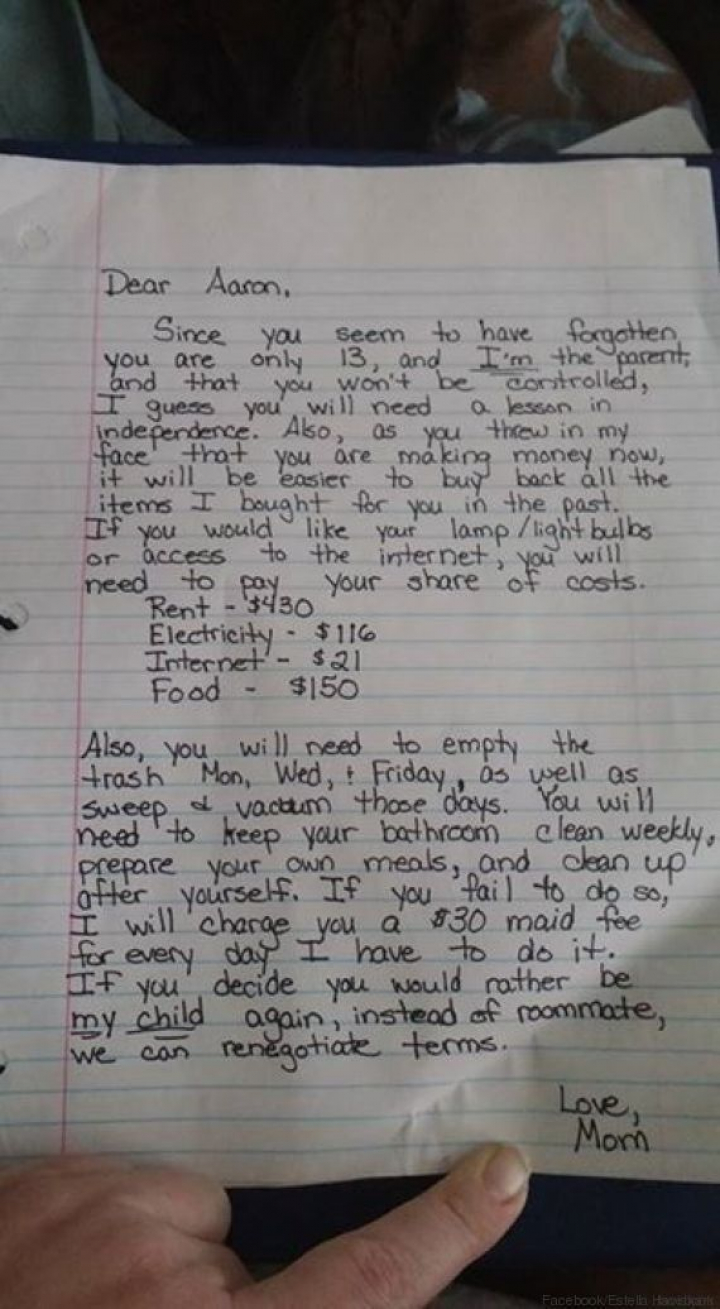 Dear Aaron,
Since you seem to have forgotten
you are only 13, and I'm the parent,
and that you won't be controlled,
I guess you will need a lesson in
independence. Also, as you threw in my
face that you are making money now,
it will be easier to buy back all the
items I bought for you in the past.
If you would like your lamp/light bulbs
or access to the internet, you will
need to pay your share of costs.
Rent - $430
Electricity - $116
Internet - $21
Food - $150
Also, you will need to empty the
trash Mon, Wed, & Friday, as well as
sweep & vacuum those days. You will
need to keep your bathroom clean weekly,
prepare your own meals, and clean up
after yourself. If you fail to do so,
I will charge you a $30 maid fee
for every day I have to do it.
If you decide you would rather be
my child again, instead of roommate,
we can renegotiate terms.
Love,
Mom
Facebook/Estella